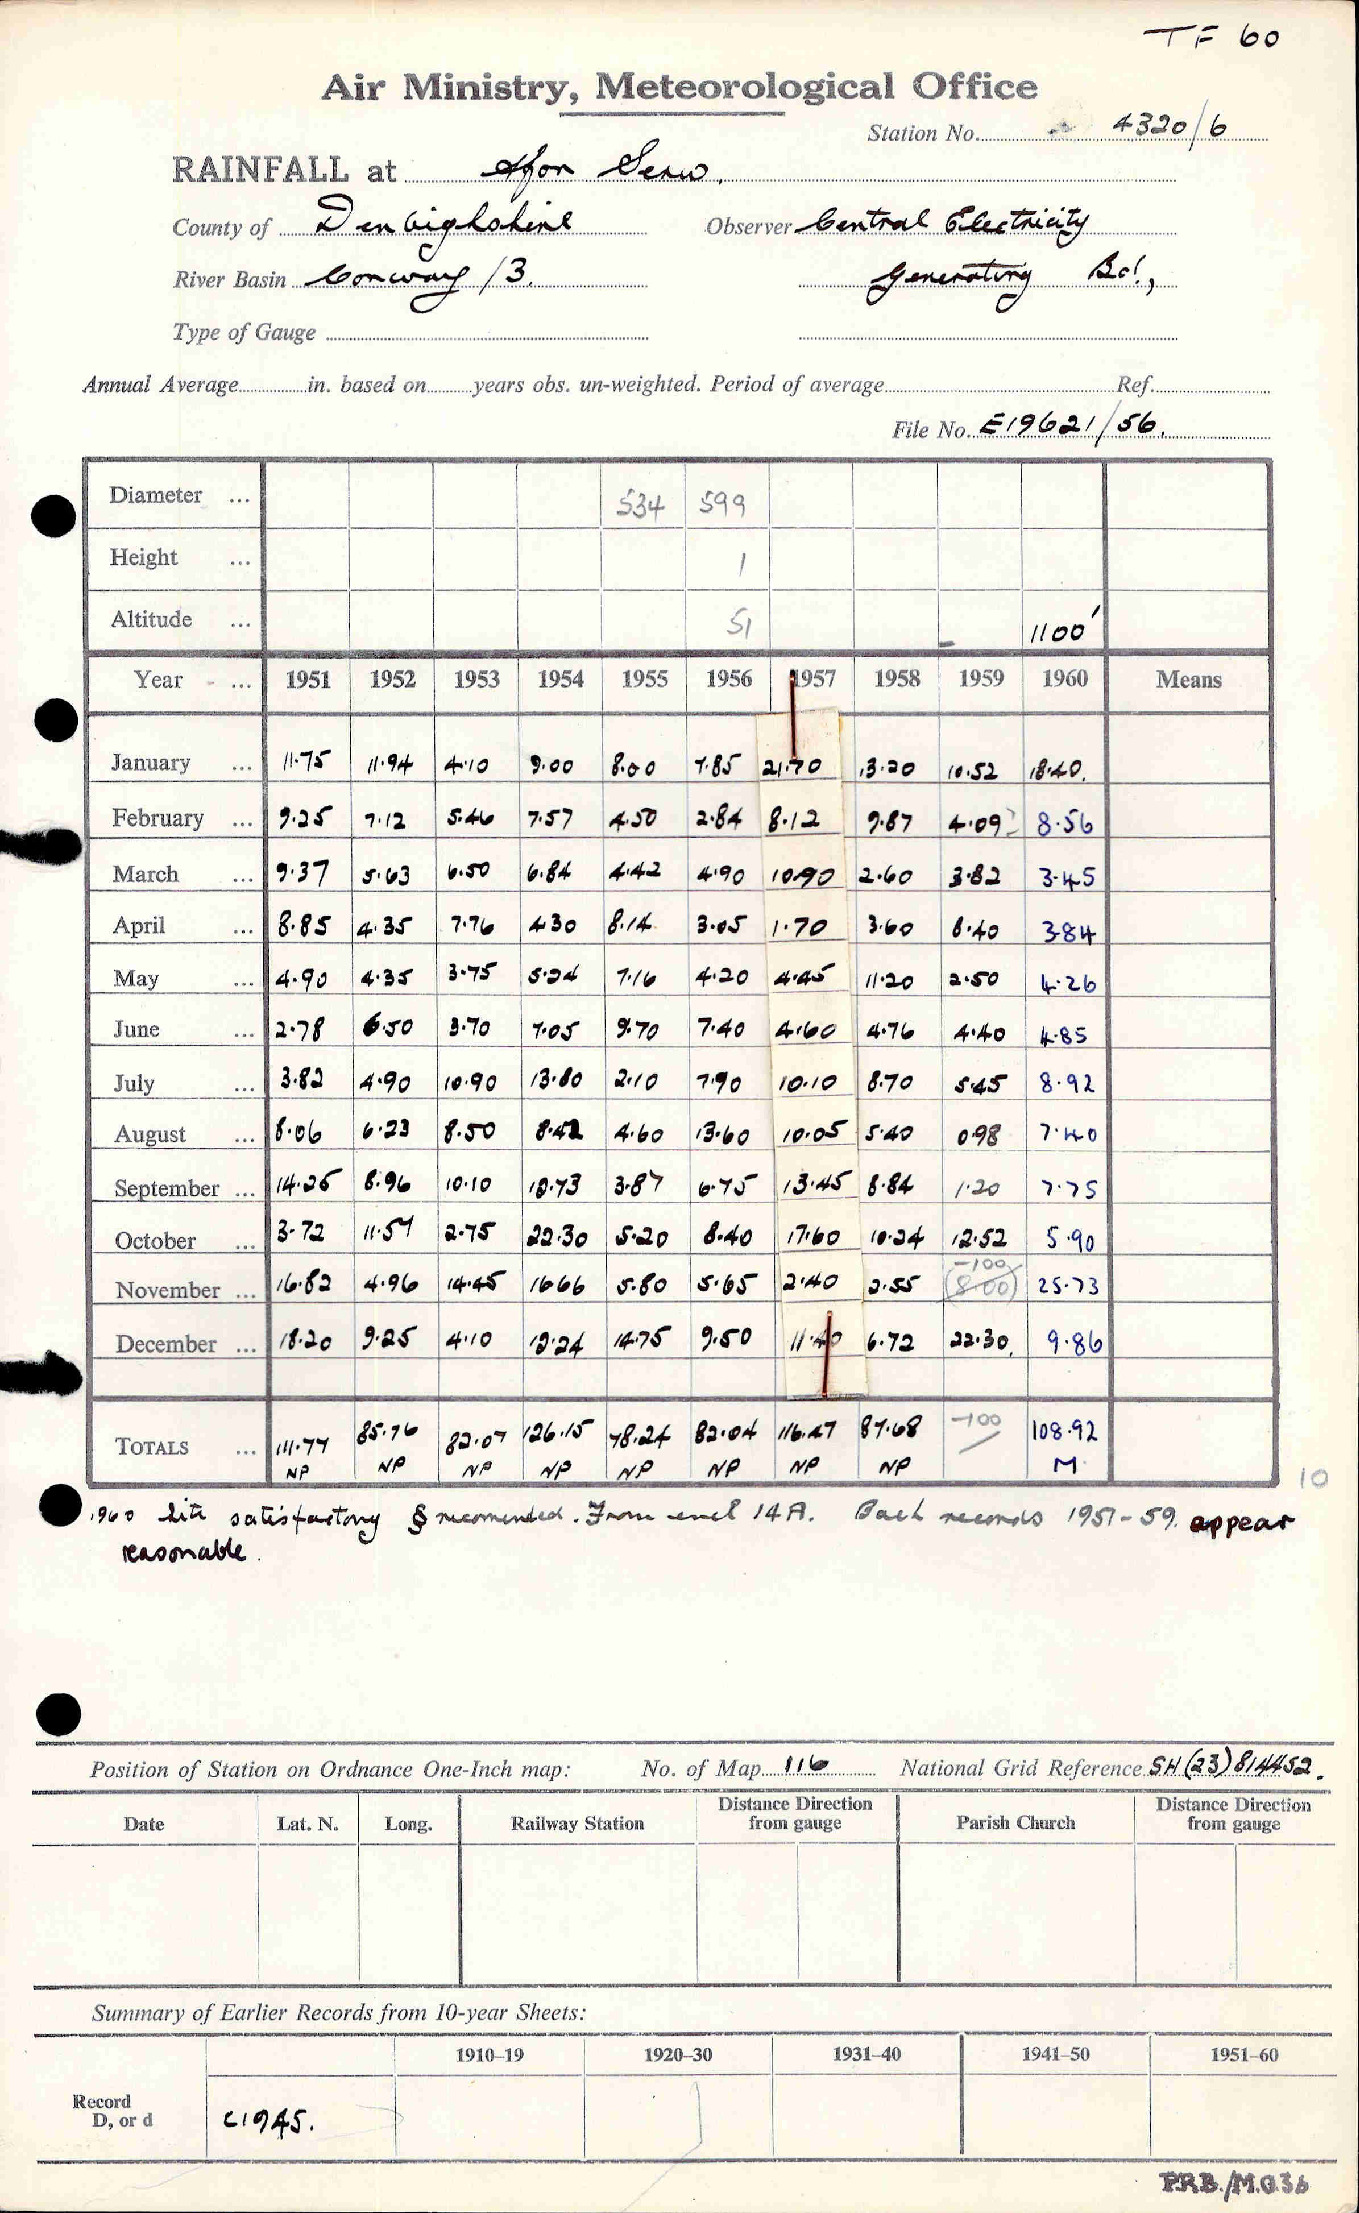 TF 60
Air Ministry, Meteorological Office
Station No. 4320/6
RAINFALL at Afon Serw.
County of Denbighshire Observer Central Electricity
River Basin Conway /3. Generating Bd.,
Type of Gauge
Annual Average in. based on years obs. un-weighted. Period of average Ref.
File No. E19621/56.
Diameter ... 534 599
Height ... 1
Altitude ... 51 1100'
Year ... 1951 1952 1953 1954 1955 1956 1957 1958 1959 1960 Means
January ... 11.75 11.94 4.10 9.00 8.00 7.85 21.70 13.20 10.52 18.40.
February ... 9.25 7.12 5.46 7.57 4.50 2.84 8.12 9.87 4.09? 8.56
March ... 9.37 5.63 6.50 6.84 4.42 4.90 10.90 2.60 3.82 3.45
April ... 8.85 4.35 7.76 4.30 8.14 3.05 1.70 3.60 8.40 3.84
May ... 4.90 4.35 3.75 5.24 7.16 4.20 4.45 11.20 2.50 4.26
June ... 2.78 6.50 3.70 7.05 9.70 7.40 4.60 4.76 4.40 4.85
July ... 3.82 4.90 10.90 13.80 2.10 7.90 10.10 8.70 5.45 8.92
August ... 8.06 6.23 8.50 8.42 4.60 13.60 10.05 5.40 0.98 7.40
September ... 14.25 8.96 10.10 12.73 3.87 6.75 13.45 8.84 1.20 7.75
October ... 3.72 11.57 2.75 22.30 5.20 8.40 17.60 10.24 12.52 5.90
-100
November ... 16.82 4.96 14.45 16.66 5.80 5.65 2.40 2.55 (8.00) 25.73
December ... 18.20 9.25 4.10 12.24 14.75 9.50 11.40 6.72 22.30. 9.86
TOTALS ... 111.77 85.76 82.07 126.15 78.24 82.04 116.47 87.68 -100 108.92
NP NP NP NP NP NP NP NP M
10
1960 Site satisfactory § recomended. From encl 14A. Back records 1951-59. appear
reasonable.
Position of Station on Ordnance One-Inch map: No. of Map 116 National Grid Reference SH(23)814452.
Date Lat. N. Long. Railway Station Distance Direction from gauge Parish Church Distance Direction from gauge
Summary of Earlier Records from 10-year Sheets:
1910–19 1920–30 1931–40 1941–50 1951–60
Record
D, or d C1945.
P.R.B./M.O.36